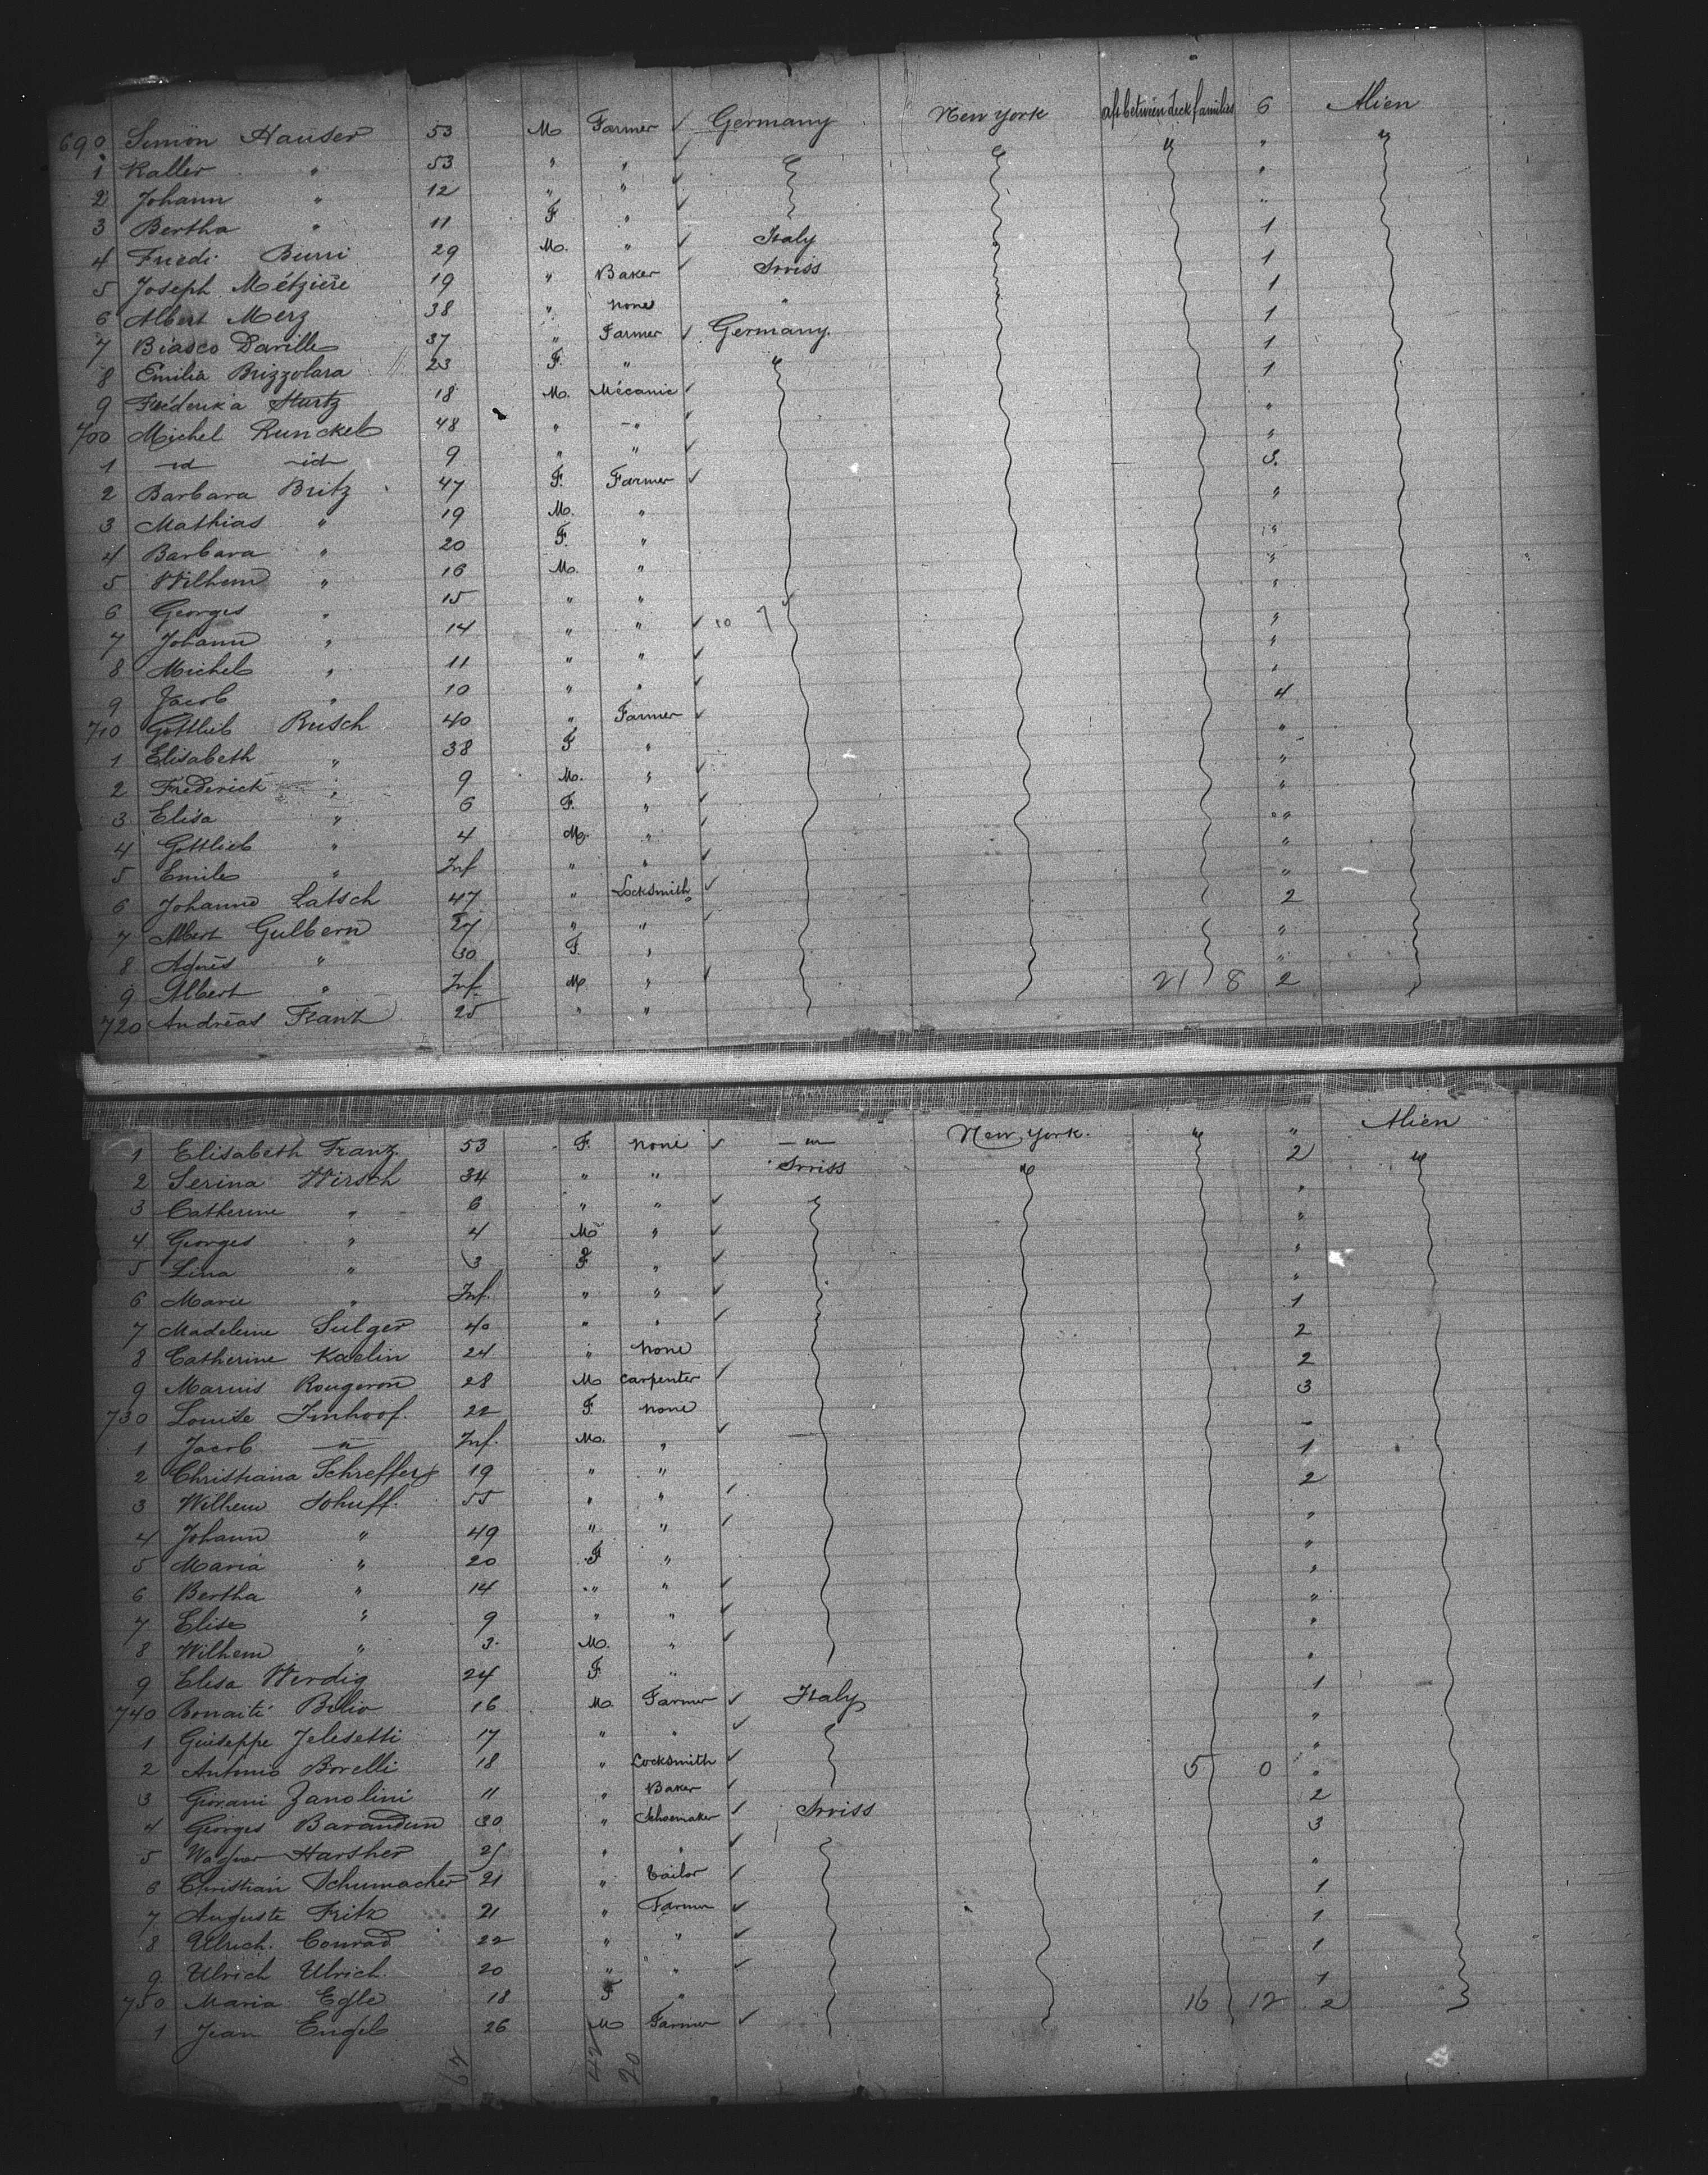 690 Simon Hauser 53 M Farmer ✓ Germany New York aft between deck families 6 Alien
1 Kaller " 53 " " ✓ " " " " "
2 Johann " 12 " " ✓ "
3 Bertha " 11 F " ✓ "
4 Friedi Burri 29 M. " ✓ Italy 1
5 Joseph Métzière 19 " Baker ✓ Swiss 1
6 Albert Merz 38 " none " 1
7 Biasco Darille 37 " Farmer ✓ Germany 1
8 Emilia Brizzolara 23 F. " " 1
9 Fréderika Sturtz 18 M. Mécanic ✓ 1
700 Michel Runckel 48 " " ✓ "
1 id id 9 " " ✓ "
2 Barbara Britz 47 F. Farmer ✓ 3.
3 Mathias " 19 M. " "
4 Barbara " 20 F. " "
5 Wilhem " 16 M. " "
6 Georges " 15 " " "
7 Johann " 14 " " ✓ "
8 Michel " 11 " " ✓ "
9 Jacob " 10 " " ✓ "
710 Gottlieb Rusch 40 " Farmer ✓ 4
1 Elisabeth " 38 F " "
2 Frederick " 9 M. " ✓ "
3 Elisa " 6 F. " ✓ "
4 Gottlieb " 4 M. " ✓ "
5 Emile " Inf " " ✓ "
6 Johann Latsch 47 " Locksmith ✓ "
7 Albert Gulbern 27 " " ✓ 2
8 Agnes " 30 F. " "
9 Albert " Inf. M " ✓ "
720 Andréas Franz 25 " " 21 8 2
1 Elisabeth Franz 53 F. none ✓ " New York. " " Alien
2 Serina Wirsch 34 " " Swiss " 2 "
3 Catherine " 6 " " ✓ " "
4 Georges " 4 M " ✓ "
5 Lina " 3 F " ✓ "
6 Marie " Inf. " " ✓ "
7 Madeleine Sulger 40 " " ✓ 1
8 Catherine Kaelin 24 " none 2
9 Marius Rougeron 28 M carpenter ✓ 2
730 Louise Imhoof. 22 F. none 3
1 Jacob " Inf. M. " ✓ "
2 Christiana Schreffer 19 " " 1
3 Wilhem Schuff. 55 " " ✓ 2
4 Johann " 49 " " ✓ "
5 Maria " 20 F " "
6 Bertha " 14 " " ✓ "
7 Elise " 9 " " ✓ "
8 Wilhem " 3. M. " ✓ "
9 Elisa Werdig 24 F " "
740 Bonaité Belio 16 M. Farmer ✓ Italy 1
1 Guiseppe Jelesetti 17 " " ✓ "
2 Antonio Borelli 18 " Locksmith ✓ "
3 Giovani Zanolini 11 " Baker ✓ 5 0 "
4 Georges Barandun 30 " Schoemaker ✓ Swiss 2
5 Harsher 25 " " ✓ 3
6 Christian Schumacher 21 " Tailor ✓ "
7 Auguste Fritz 21 " Farmer ✓ 1
8 Ulrich Conrad 22 " " ✓ 1
9 Ulrich Ulrich. 20 " " ✓ 1
750 Maria Egle 18 F " 1
1 Jean Engel 26 M Farmer ✓ 16 12 2
62 42 20